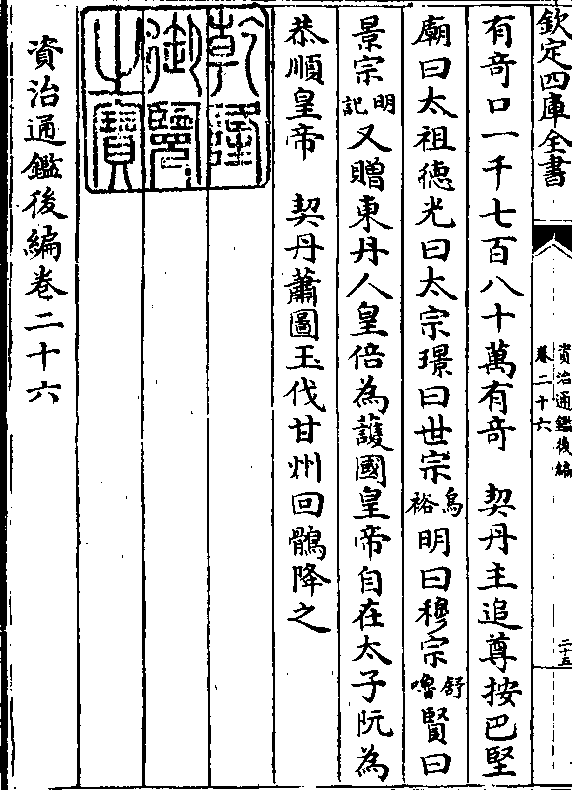 欽定四庫全書
資治通鑑後編
卷二十六
二十五
有奇口一千七百八十萬有奇　契丹主追尊按巴堅
廟曰太祖德光曰太宗璟曰世宗烏裕明曰穆宗舒嚕賢曰
景宗明記又贈東丹人皇倍為護國皇帝自在太子阮為
恭順皇帝　契丹蕭圖玉伐甘州回鶻降之
乾隆御覽之寶
資治通鑑後編卷二十六